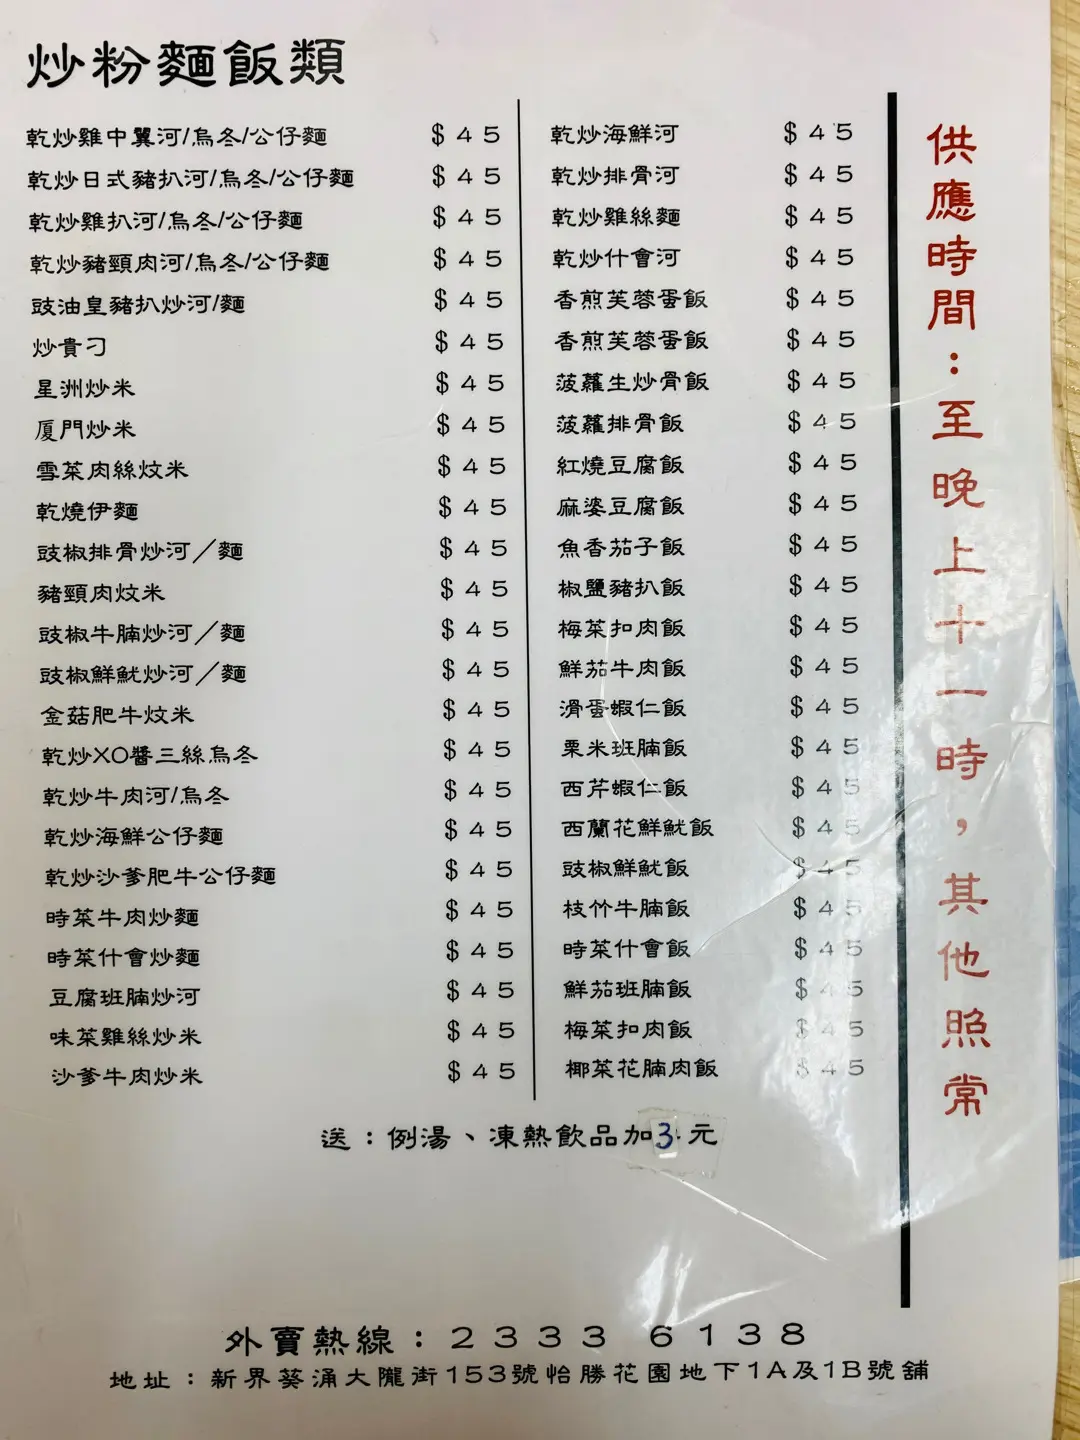 炒粉麵飯類
乾炒雞中翼河/烏冬/公仔麵 $45
乾炒日式豬扒河/烏冬/公仔麵 $45
乾炒雞扒河/烏冬/公仔麵 $45
乾炒豬頸肉河/烏冬/公仔麵 $45
豉油皇豬扒炒河/麵 $45
炒貴刁 $45
星洲炒米 $45
厦門炒米 $45
雪菜肉絲炆米 $45
乾燒伊麵 $45
豉椒排骨炒河／麵 $45
豬頸肉炆米 $45
豉椒牛腩炒河／麵 $45
豉椒鮮魷炒河／麵 $45
金菇肥牛炆米 $45
乾炒XO醬三絲烏冬 $45
乾炒牛肉河/烏冬 $45
乾炒海鮮公仔麵 $45
乾炒沙爹肥牛公仔麵 $45
時菜牛肉炒麵 $45
時菜什會炒麵 $45
豆腐班腩炒河 $45
味菜雞絲炒米 $45
沙爹牛肉炒米 $45
乾炒海鮮河 $45
乾炒排骨河 $45
乾炒雞絲麵 $45
乾炒什會河 $45
香煎芙蓉蛋飯 $45
香煎芙蓉蛋飯 $45
菠蘿生炒骨飯 $45
菠蘿排骨飯 $45
紅燒豆腐飯 $45
麻婆豆腐飯 $45
魚香茄子飯 $45
椒鹽豬扒飯 $45
梅菜扣肉飯 $45
鮮茄牛肉飯 $45
滑蛋蝦仁飯 $45
栗米班腩飯 $45
西芹蝦仁飯 $45
西蘭花鮮魷飯 $45
豉椒鮮魷飯 $45
枝竹牛腩飯 $45
時菜什會飯 $45
鮮茄班腩飯 $45
梅菜扣肉飯 $45
椰菜花腩肉飯 $45
供應時間：至晚上十一時，其他照常
送：例湯、凍熱飲品加3元
外賣熱線：2333 6138
地址：新界葵涌大隴街153號怡勝花園地下1A及1B號舖